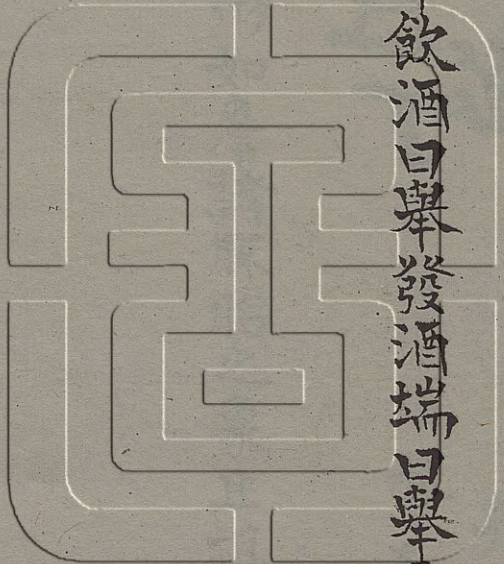 飲酒曰舉發酒端曰舉